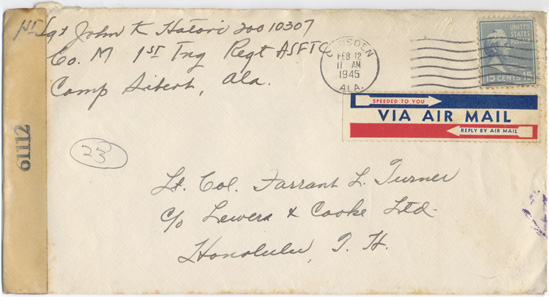 1st Sgt John K Hatori 20010307
Co. M 1st Tng Regt ASFTC
Camp Sibert, Ala.
GADSDEN
FEB 12
11 AM
1945
ALA.
UNITED
STATES
POSTAGE
15 CENTS 15
SPEEDED TO YOU
VIA AIR MAIL
REPLY BY AIR MAIL
61112
23
Lt. Col. Farrant L. Turner
c/o Lewers & Cooke Ltd.
Honolulu, T. H.